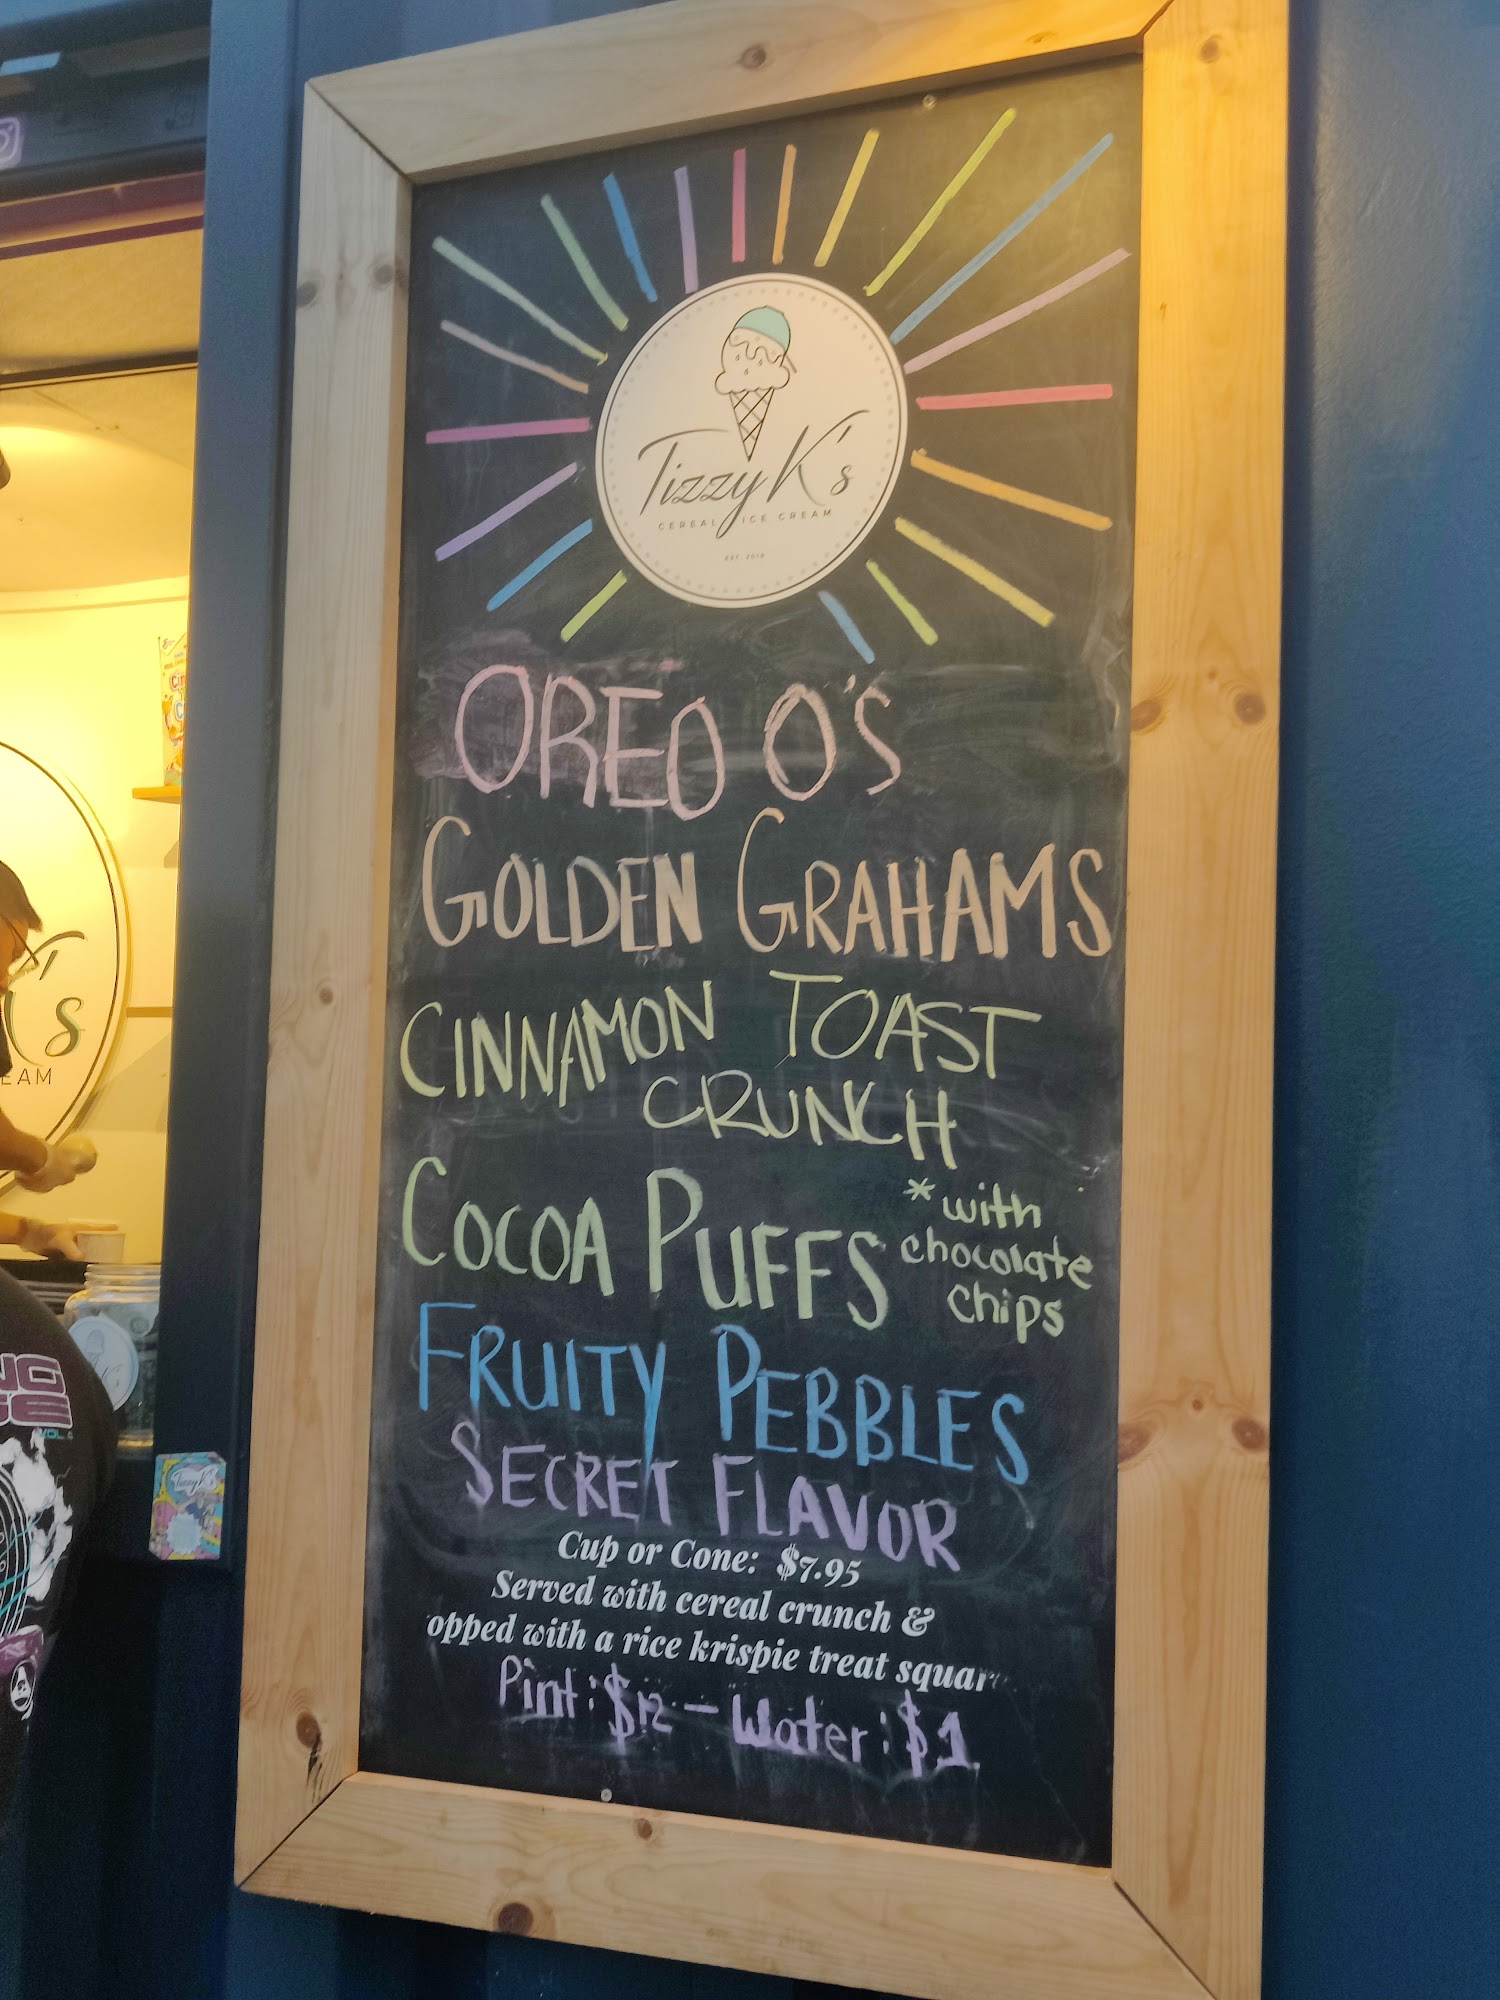 Tizzy K's
CEREAL ICE CREAM
EST 2019
OREO O'S
GOLDEN GRAHAMS
CINNAMON TOAST
CRUNCH
COCOA PUFFS
*with
chocolate
chips
FRUITY PEBBLES
SECRET FLAVOR
Cup or Cone: $7.95
Served with cereal crunch &
opped with a rice krispie treat squar
Pint: $12 - Water: $1
K's
EAM
VOL.
Tizzy K's